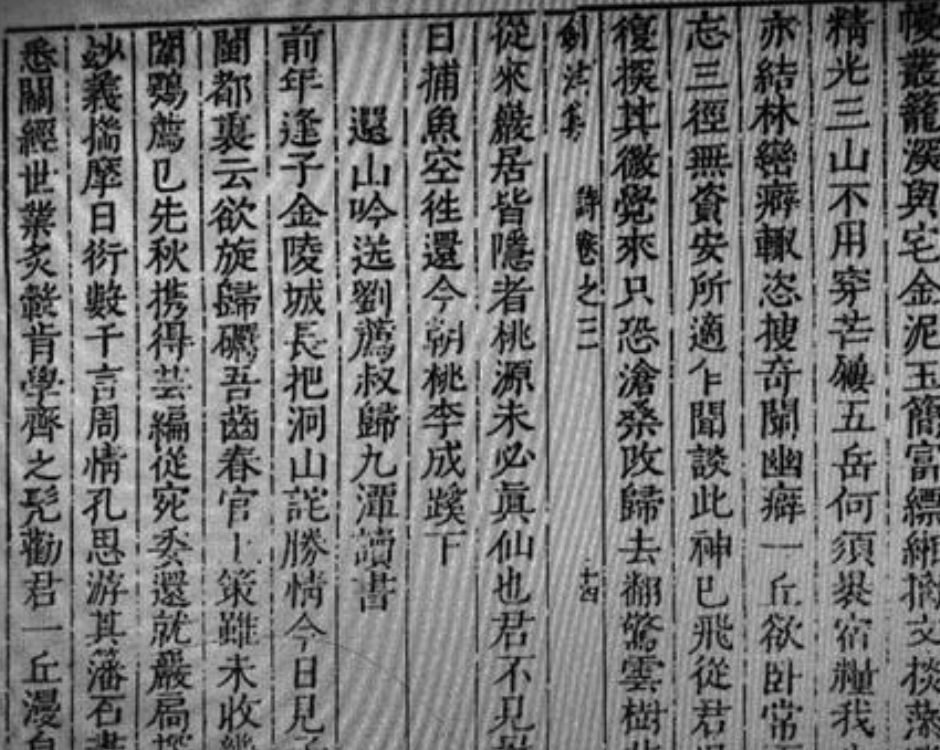 幔叢籠深與宅金泥玉簡富縹緗摛文掞藻
精光三山不用穿芒屩五岳何須褁宿糧我
亦結林巒癖輙恣搜奇闡幽癖一丘欲卧常
忘三徑無資安所適乍聞談此神已飛從君
復撰其徵覺來只恐滄桑改歸去翻驚雲樹
劍津集 詩卷之三 十四
從來巖居皆隱者桃源未必眞仙也君不見
日捕魚空徃還今朝桃李成蹊下
還山吟送劉薦叔歸九潭讀書
前年逢子金陵城長把洞山詫勝情今日見子
閩都裏云欲旋歸礪吾齒春官上策雖未收
闈鶚薦已先秋携得芸編從宛委還就巖扃
妙義揣摩日衍數千言周情孔思游其藩石
悉關經世業炙轂肯學齊之髠勸君一丘漫